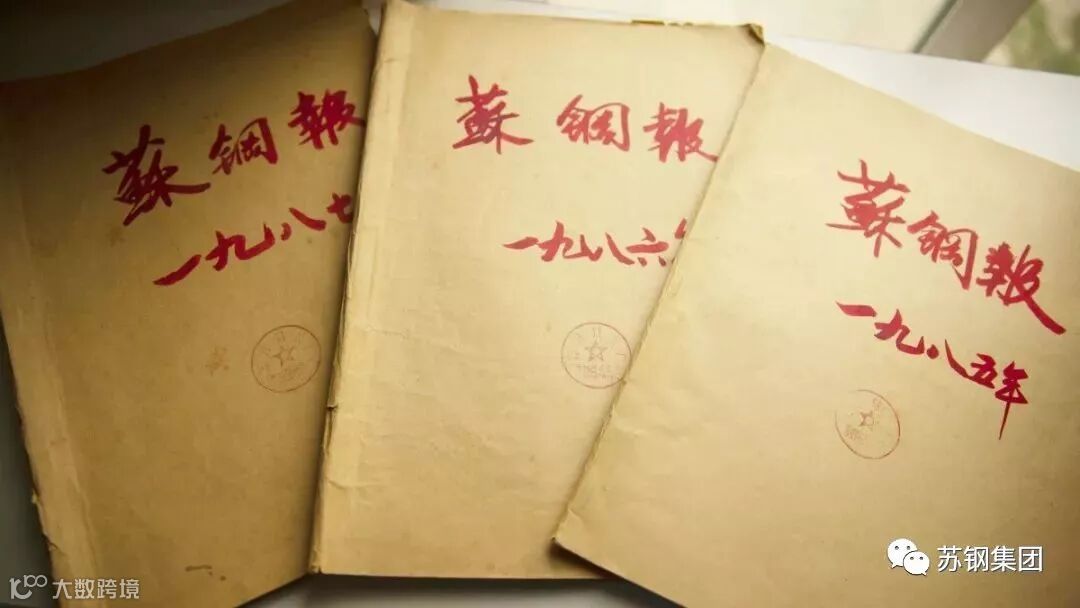 蘇鋼報
一九八七
蘇鋼報
一九八六年
蘇鋼報
一九八五年
苏钢集团
大数跨境